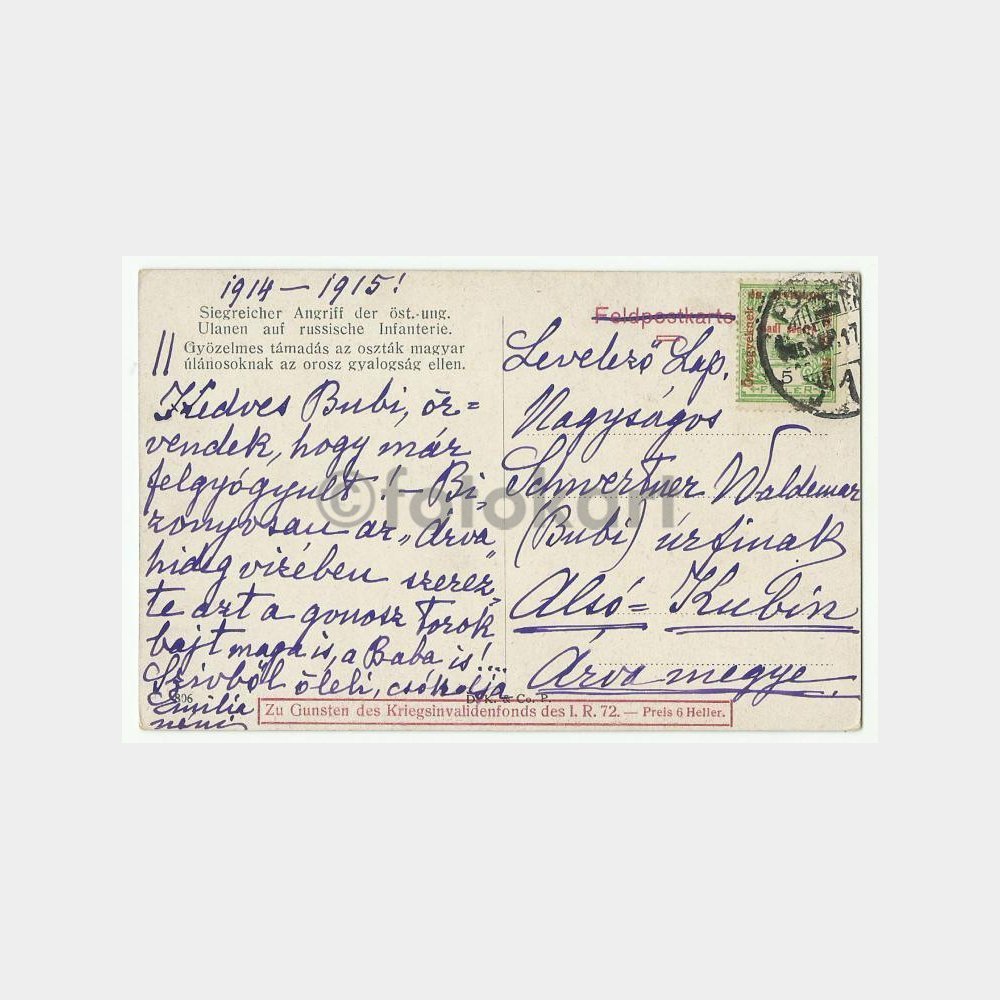 1914 – 1915!
Siegreicher Angriff der öst.-ung.
Ulanen auf russische Infanterie.
Győzelmes támadás az oszták magyar
úlánosoknak az orosz gyalogság ellen.
Kedves Bubi, ör=
vendek, hogy már
felgyógyult! – Bi=
zonyosan az „Árva"
hideg vizében szerez=
te azt a gonosz torok
bajt maga is, a Baba is!...
Szivből öleli, csókolja
Emilia
néni
806
D. K. & Co. P.
Zu Gunsten des Kriegsinvalidenfonds des I. R. 72. — Preis 6 Heller.
Feldpostkarte
Levelező Lap.
Nagyságos
Schwertner Waldemar
(Bubi) úrfinak
Alsó= Kubin
Árva megye.
Özvegyeknek
hadi
5
FILLER
17
©fotokart